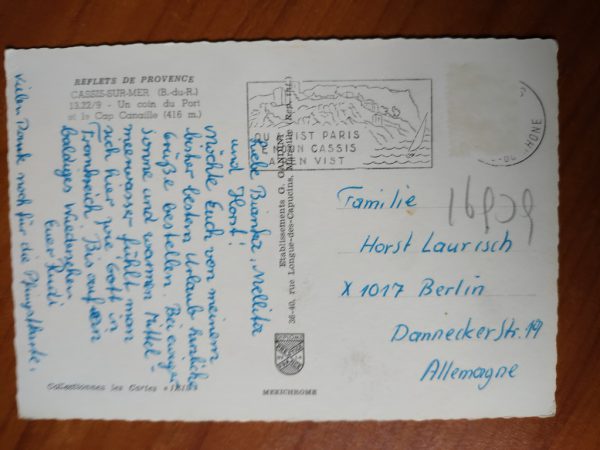 REFLETS DE PROVENCE
CASSIS-SUR-MER (B.-du-R.)
13.22/9 - Un coin du Port
et le Cap Canaille (416 m.)
QU A VIST PARIS
E NOUN CASSIS
A REN VIST
Liebe Bianka, Mellitta
und Horst!
Möchte Euch von meinem
bisher besten Urlaub herzliche
Grüße bestellen. Bei ewiger
Sonne und warmen Mittel-
meerwasser fühlt man
sich hier wie Gott in
Frankreich. Bis auf ein
baldiges Wiedersehen.
Euer
Vielen Dank noch für die Pfingstkarte.
Etablissements G. GANDINI
38-40, rue Longue-des-Capucins, Marseille (Rep. Int.)
Familie
Horst Laurisch
X 1017 Berlin
Danneckerstr. 19
Allemagne
16929
HONE
Collectionnez les Cartes
MEXICHROME